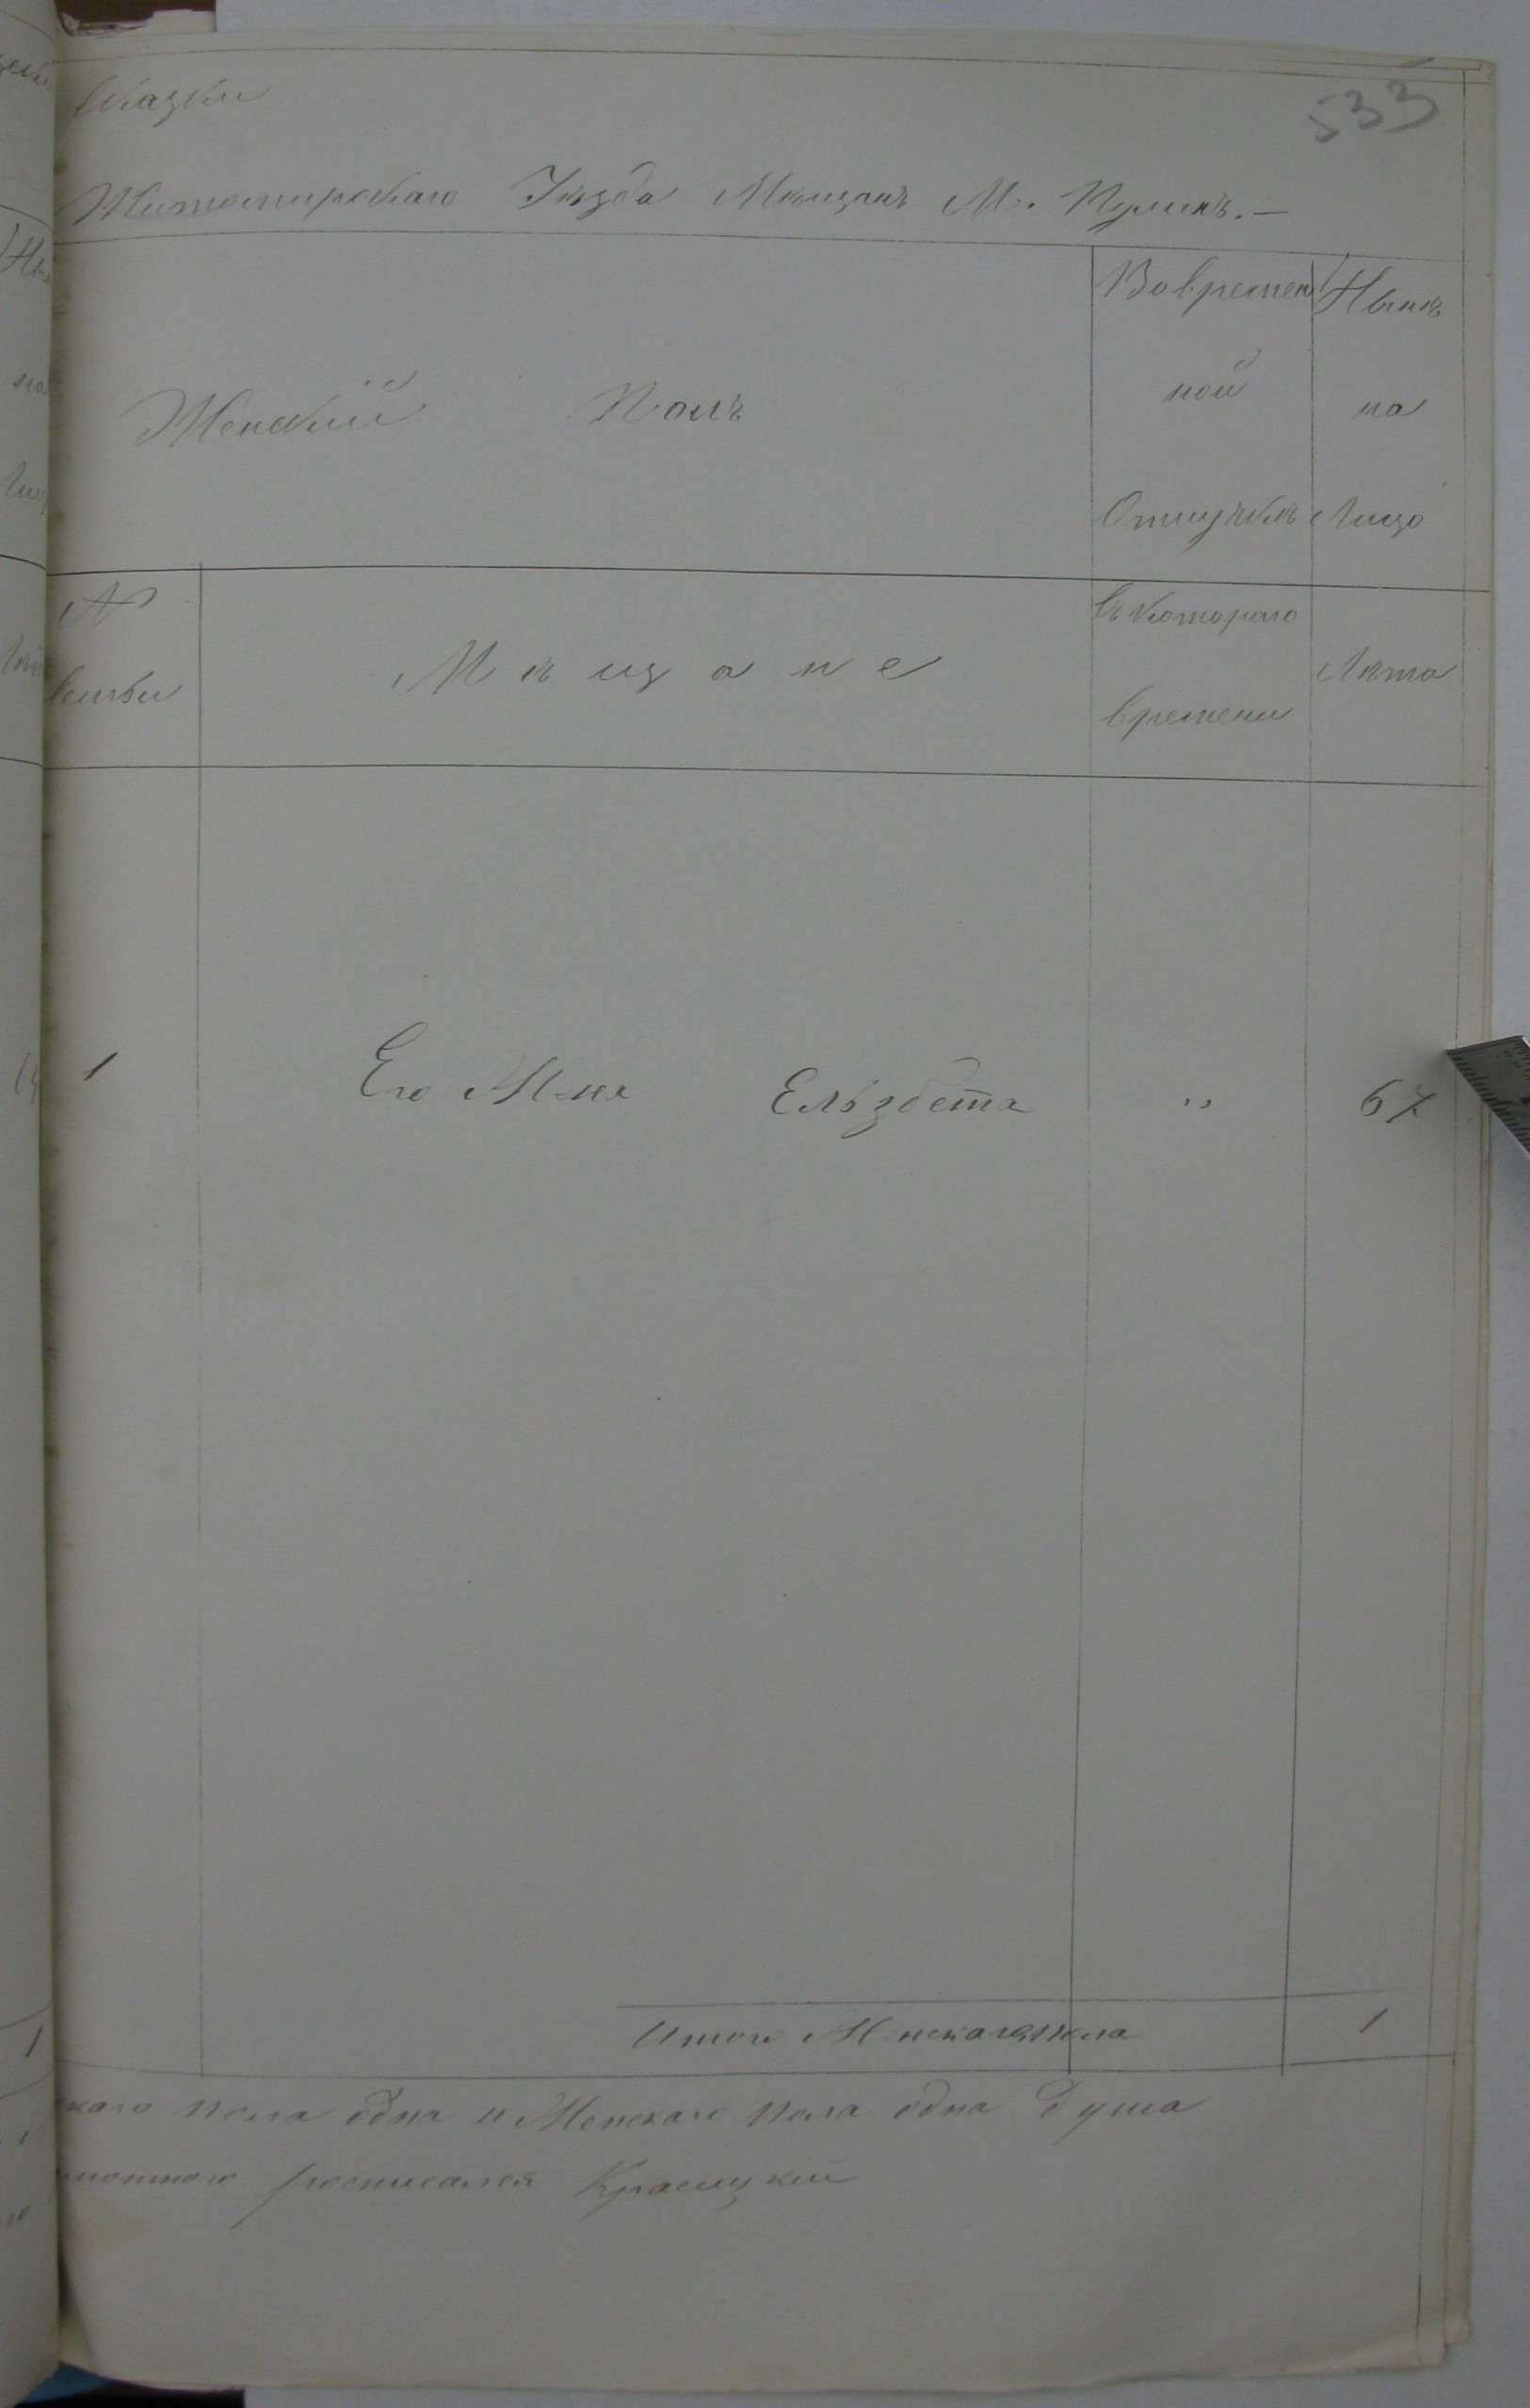 533
Сказки
Житомирскаго Уѣзда Мѣщанъ М. Пулинъ.—
Женскій Полъ
Во времен
ной
Отлучкѣ
Нынѣ
на
Лицо
№
семьи
Мѣщане
Съ котораго
времени
Лѣта
1 Его Жена Ельзбета " 67
Итого Женскаго пола 1
скаго пола одна и Женскаго пола одна душа
росписался Красицкій